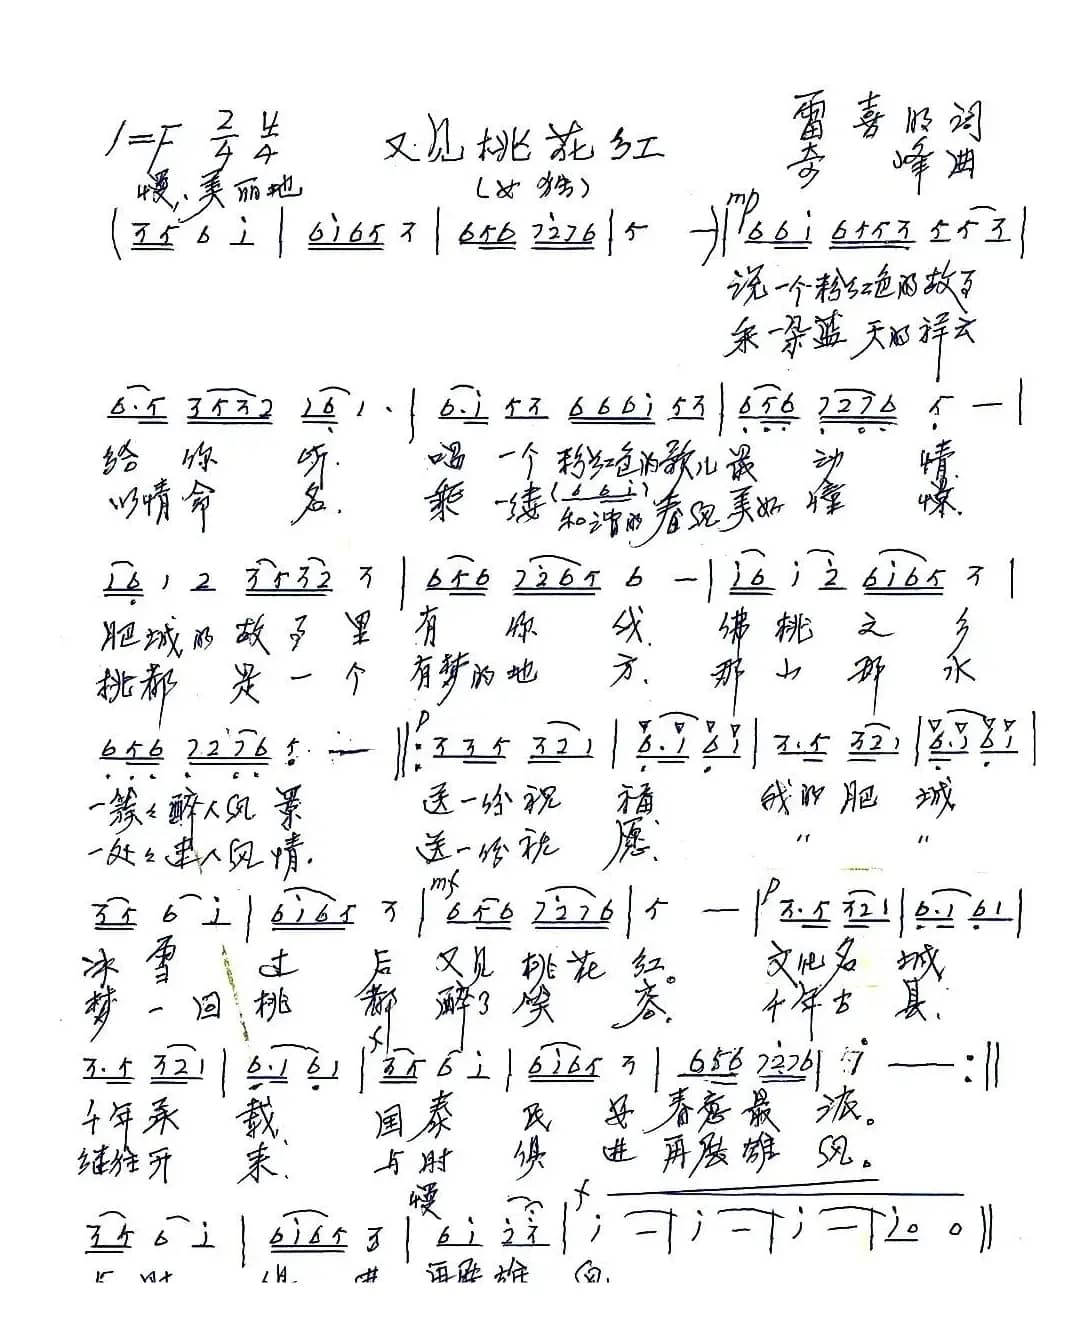 1=F 2/4 4/4 又见桃花红 雷喜明词
慢,美丽地 (女独) 奇峰曲
(3 5 6 i | 6 i 6 5 3 | 6 5 6 7 2 7 6 | 5 —) | mp 6 6 i 6 5 5 3 5 5 3 |
说一个粉红色的故事
采一朵蓝天的祥云
6·5 3 5 3 2 1 6 1· | 6·i 5 3 6 6 6 i 5 3 | 6 5 6 7 2 7 6 5 — |
给你听. 唱一个粉红色的歌儿最动情.
以情命名. 乘一缕(6 6 i)和谐的春风美好憧憬.
1 6 1 2 3 5 3 2 3 | 6 5 6 7 2 6 5 6 — | i 6 i 2 6 i 6 5 3 |
肥城的故事里有你我. 佛桃之乡
桃都是一个有梦的地方. 那山那水
6 5 6 7 2 7 6 5 — ‖: p 3 3 5 3 2 1 | 6·1 6 1 | 3·5 3 2 1 | 6·1 6 1 |
一等等醉人风景 送一份祝福 我的肥城
一处处人风情. 送一份祝愿. 〃 〃
3 5 6 i | 6 i 6 5 3 | mf 6 5 6 7 2 7 6 | 5 — | p 3·5 3 2 1 | 6·1 6 1 |
冰雪过后又见桃花红。 文化名城
梦一回桃都醉了笑容. 千年古县.
3·5 3 2 1 | 6·1 6 1 | f 3 5 6 i | 6 i 6 5 3 | 6 5 6 7 2 7 6 | i — :‖
千年承载. 国泰民安春意最浓。
继往开来. 与时俱进再展雄风。
慢 f
3 5 6 i | 6 i 6 5 3 | 6 i 2 3 | i — | i — | i — | i 0 0 ‖
与时俱进再展雄风.